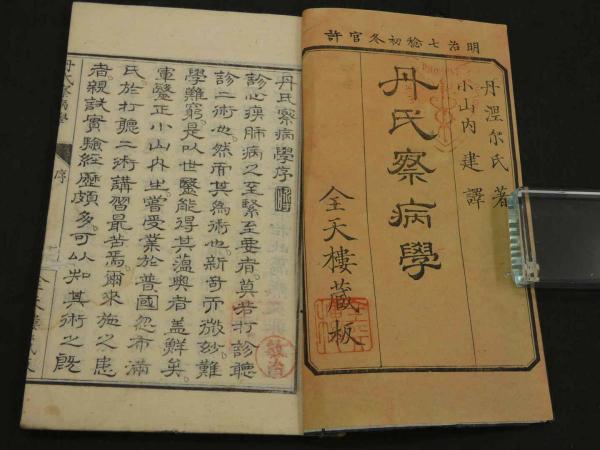 明治七稔初冬官許
丹涅尔氏著
小山内建譯
丹氏察病學
全天樓藏板
丹氏察病學序
診心疾肺病之至緊至要者莫若打診聽
診二術也然而其為術也新奇而微妙難
學難窮是以世醫能得其薀奥者盖鮮矣
軍醫正小山内生曽受業於普國忽布満
氏於打聽二術講習最苦焉爾來施之患
者親試實驗經歴頗多可以知其術之既
丹氏察病學
序